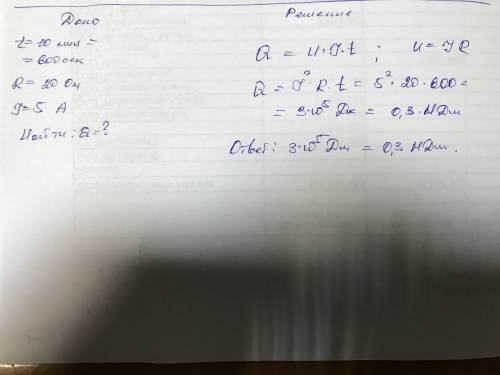 Дано
t = 10 мин =
= 600 сек
R = 20 Ом
I = 5 А
Найти: Q = ?
Решение
Q = U · I · t ; U = I R
Q = I² · R · t = 5² · 20 · 600 =
= 3·10⁵ Дж = 0,3 МДж
Ответ: 3·10⁵ Дж = 0,3 МДж.